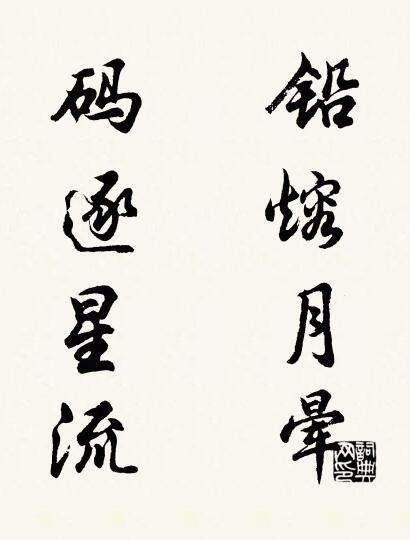 铅熔月晕
码逐星流